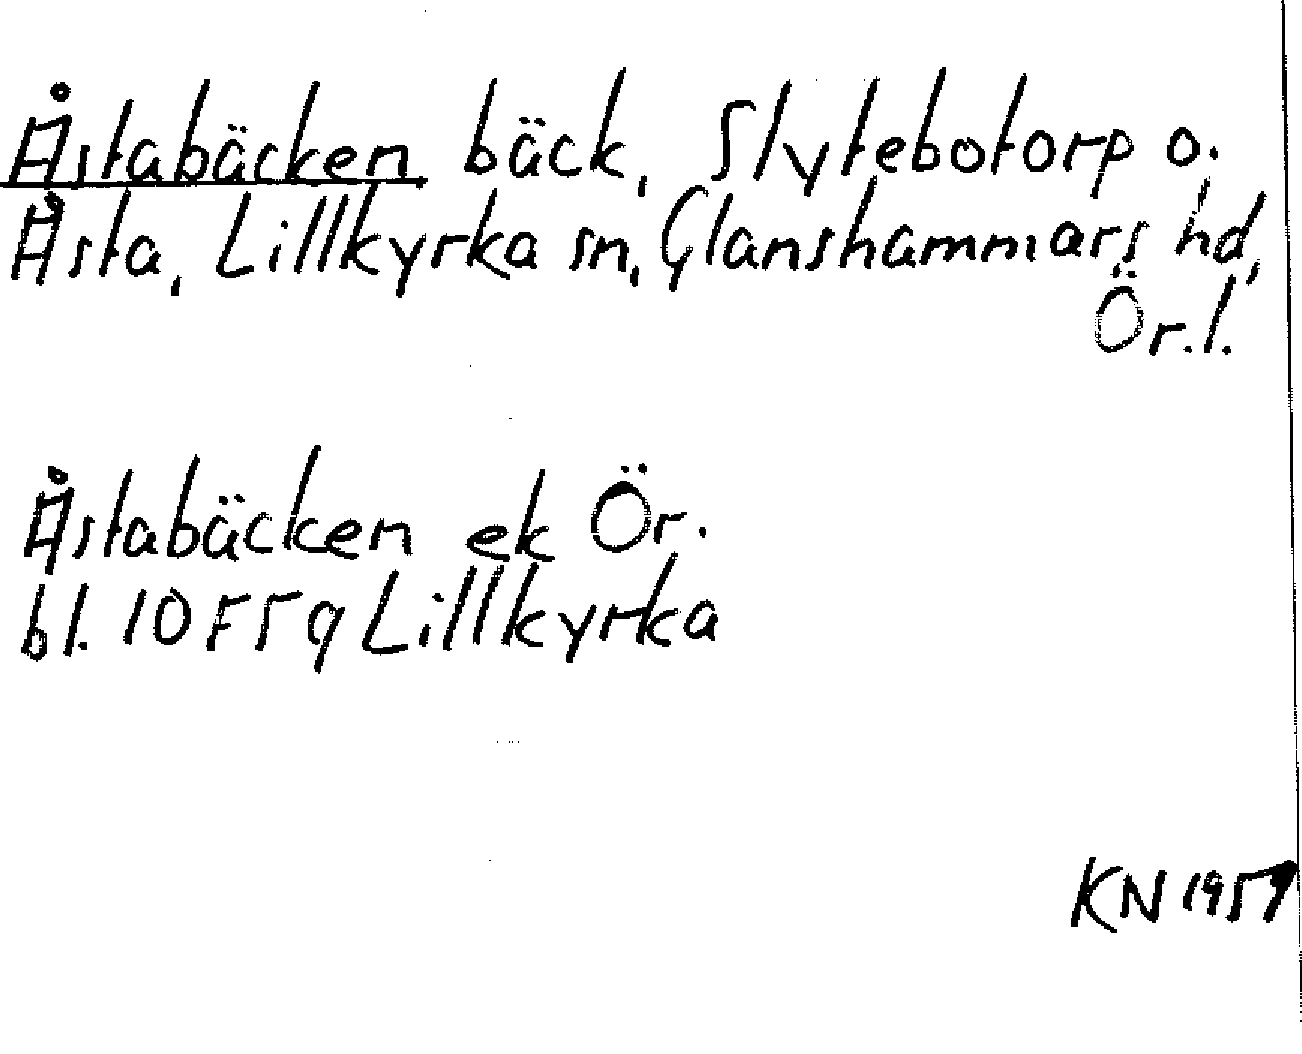 Åstabäcken bäck, Slytebotorp o.
Åsta, Lillkyrka sn, Glanshammars hd,
Ör.l.
Åstabäcken ek Ör.
bl. 10F5q Lillkyrka
KN